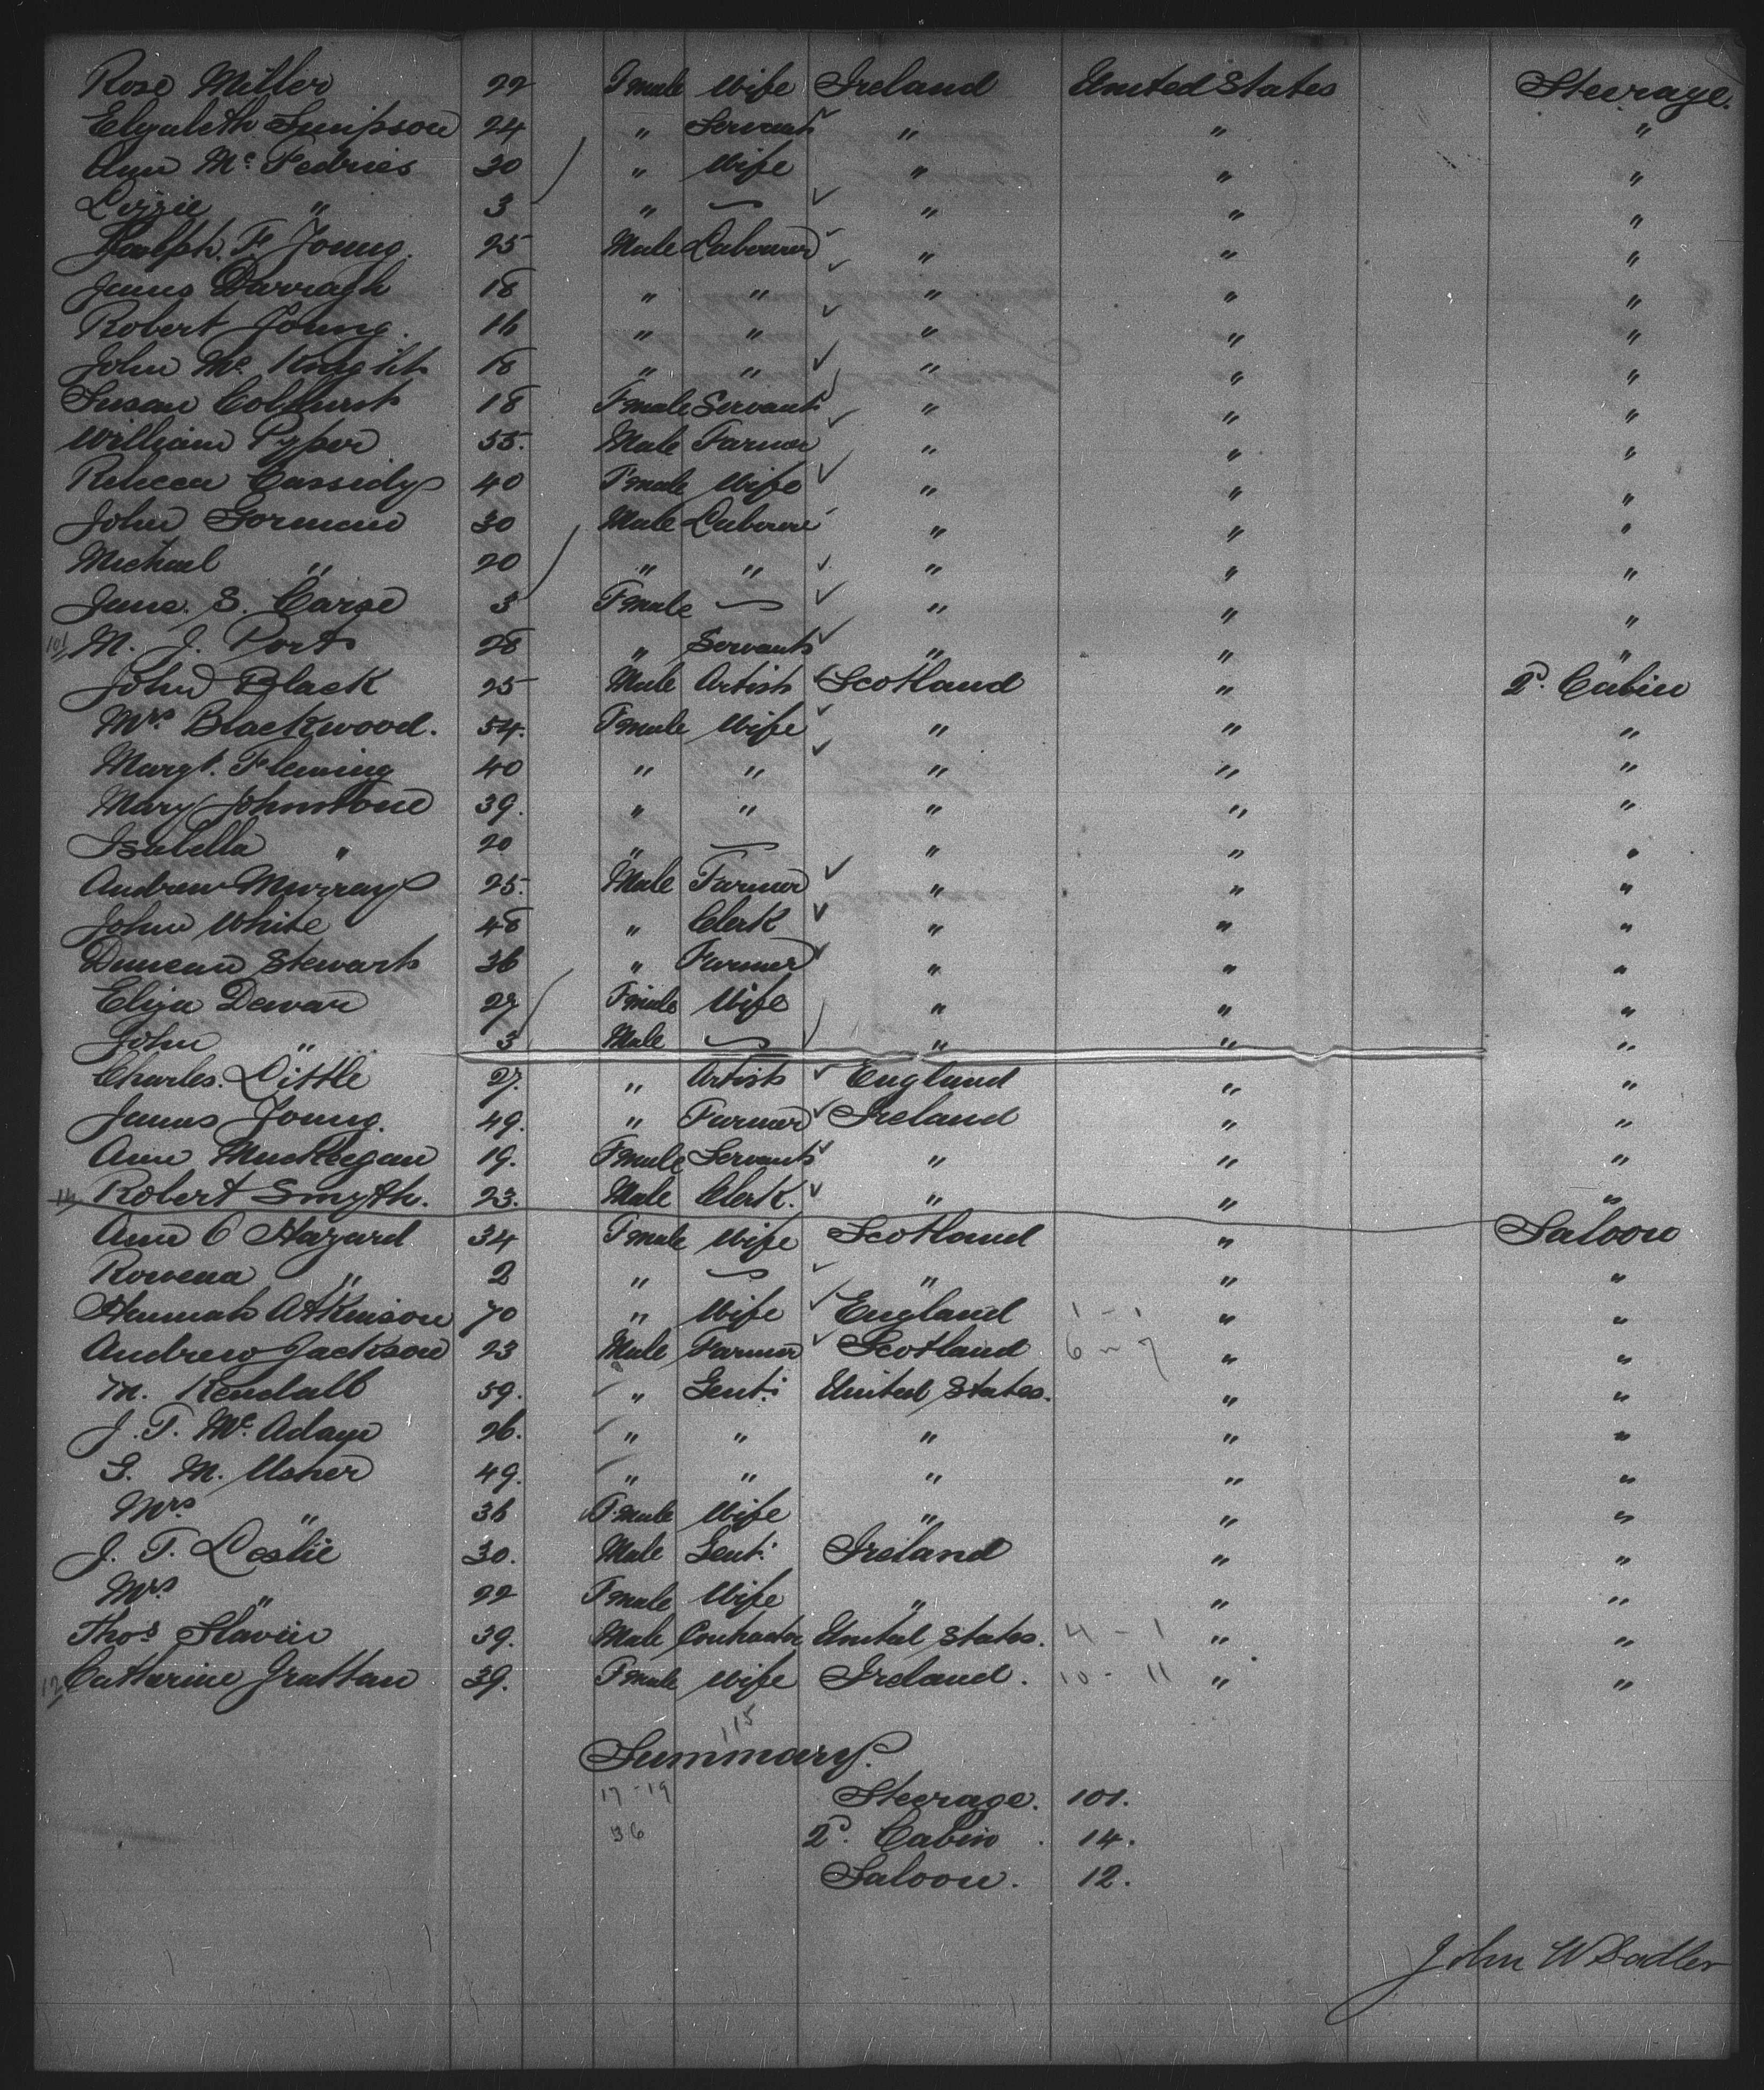 Rose Miller 22 Fmale Wife Ireland United States Steerage.
Elizabeth Simpson 24 " Servant " " "
Ann Mc Fedries 30 " Wife " " "
Lizzie " 3 " — " " "
Ralph. F Young. 25 Male Labourer " " "
James Darragh 18 " " " " "
Robert Young. 16 " " " " "
John Mc Knight 18 " " " " "
Susan Colhurst 18 Fmale Servant " " "
William Pyper 55. Male Farmer " " "
Rebecca Cassidy 40 Fmale Wife " " "
John Gorman 30 Male Labourer " " "
Michael " 20 " " " " "
Jane. S. Carse 3 Fmale — " " "
101 M. J. Port 28 " Servant " " "
John Black 25 Male Artist Scotland " 2d. Cabin
Mrs. Blackwood. 54. Fmale Wife " " "
Margt. Fleming 40 " " " " "
Mary Johnstone 39. " " " " "
Isabella " 20 " — " " "
Andrew Murray 25. Male Farmer " " "
John White 48 " Clerk " " "
Duncan Stewart 36 " Farmer " " "
Eliza Dewar 27 Fmale Wife " " "
John " 3 Male — " " "
Charles. Little 27. " Artist England " "
James Young. 49. " Farmer Ireland " "
Ann MucKeegan 19. Fmale Servant " " "
14 Robert Smyth. 23. Male Clerk. " " "
Ann C Hazard 34 Fmale Wife Scotland " Saloon
Rowena " 2 " — " " "
Hannah Atkinson 70 " Wife England 1 - 1 " "
Andrew Jackson 23 Male Farmer Scotland 6 - 7 " "
M. Kendall 59. " Gent: United States. " "
J. T. Mc. Adayn 26. " " " " "
G. M. Usher 49. " " " " "
Mrs " 36 Fmale Wife " " "
J. T. Leslie 30. Male Gent: Ireland " "
Mrs " 22 Fmale Wife " " "
Thos Slavin 39. Male Contractor United States. 4 - 1 " "
12 Catherine Grattan 39. Fmale Wife Ireland. 10 - 11 " "
115
Summary.
17 - 19 Steerage. 101.
36 2d. Cabin. 14.
Saloon. 12.
John W Sadler